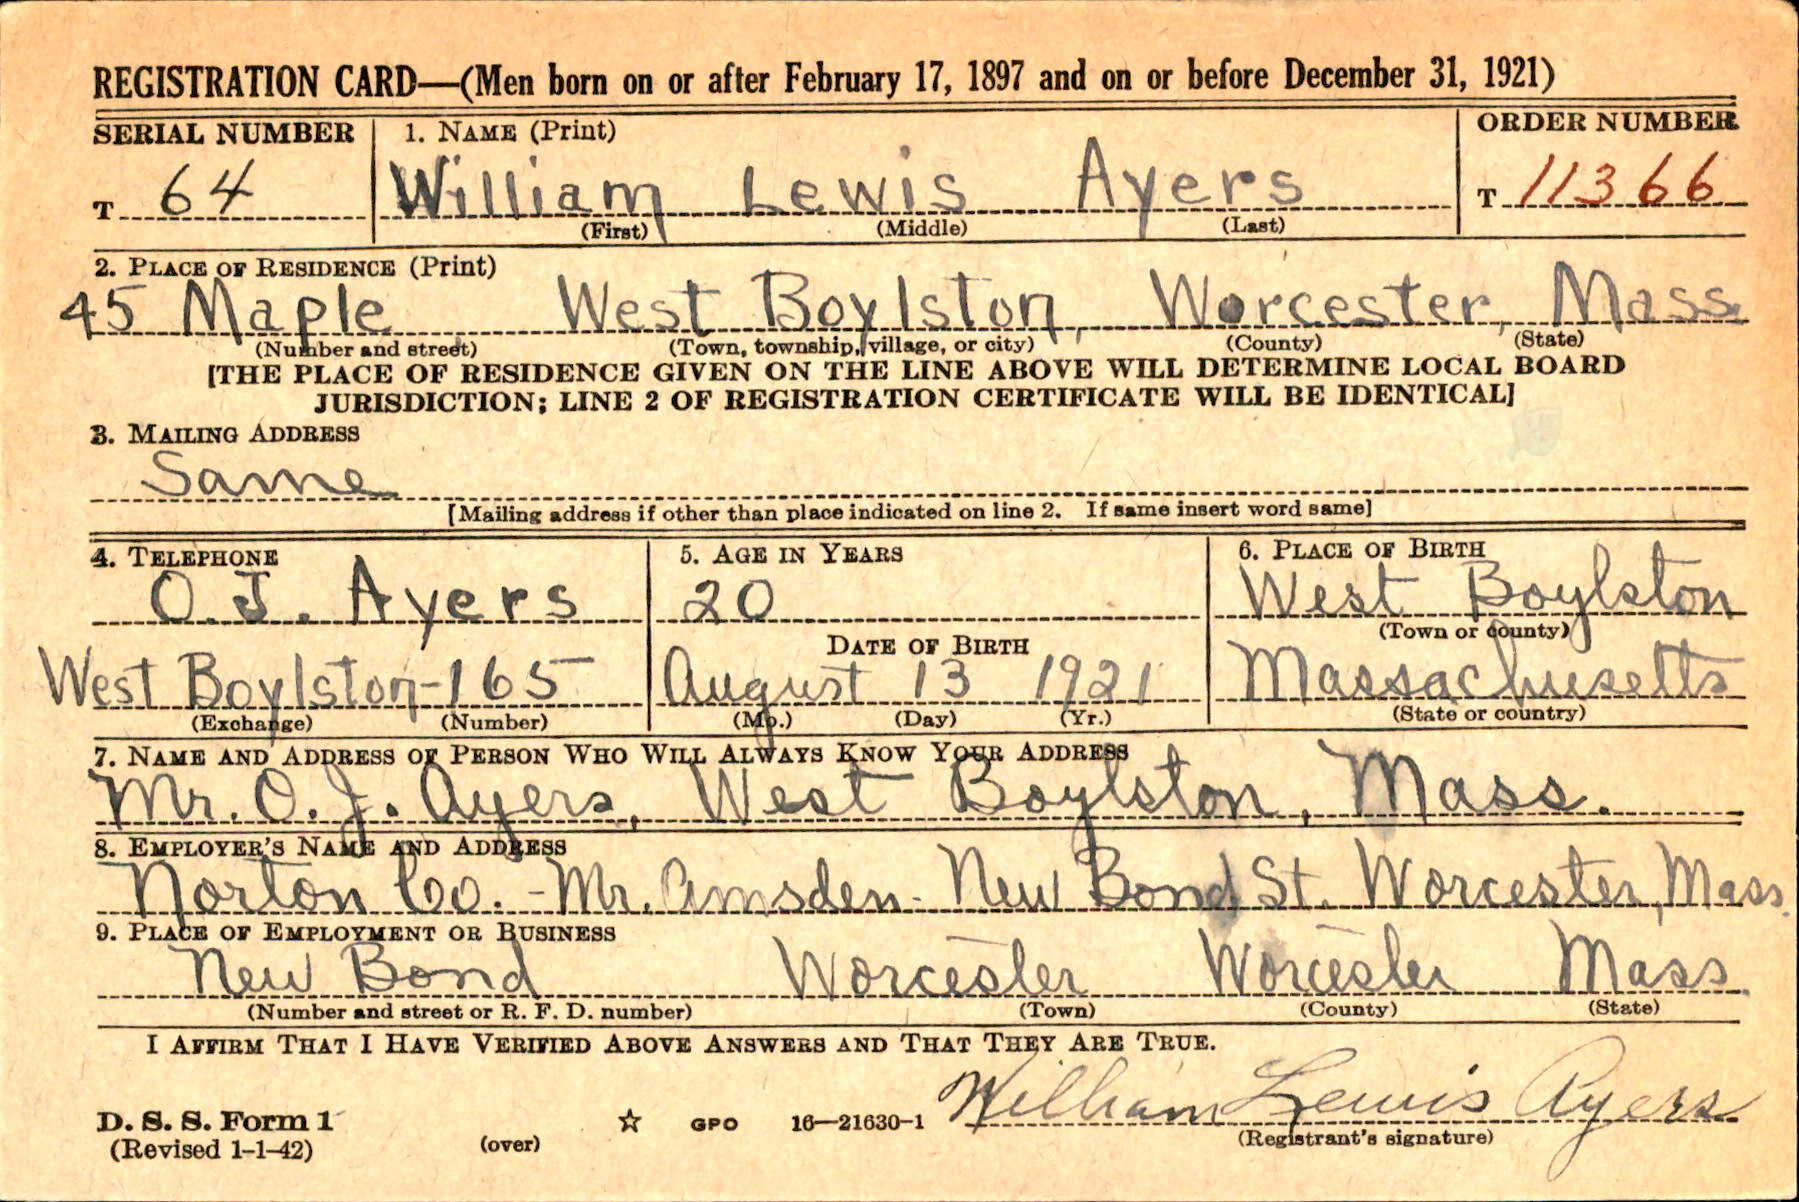 REGISTRATION CARD—(Men born on or after February 17, 1897 and on or before December 31, 1921)
SERIAL NUMBER 1. NAME (Print) ORDER NUMBER
T 64 William Lewis Ayers T 11366
(First) (Middle) (Last)
2. PLACE OF RESIDENCE (Print)
45 Maple West Boylston, Worcester, Mass.
(Number and street) (Town, township, village, or city) (County) (State)
[THE PLACE OF RESIDENCE GIVEN ON THE LINE ABOVE WILL DETERMINE LOCAL BOARD
JURISDICTION; LINE 2 OF REGISTRATION CERTIFICATE WILL BE IDENTICAL]
3. MAILING ADDRESS
Same
[Mailing address if other than place indicated on line 2. If same insert word same]
4. TELEPHONE 5. AGE IN YEARS 6. PLACE OF BIRTH
O. J. Ayers 20 West Boylston
DATE OF BIRTH (Town or county)
West Boylston-165 August 13 1921 Massachusetts
(Exchange) (Number) (Mo.) (Day) (Yr.) (State or country)
7. NAME AND ADDRESS OF PERSON WHO WILL ALWAYS KNOW YOUR ADDRESS
Mr. O. J. Ayers, West Boylston, Mass.
8. EMPLOYER'S NAME AND ADDRESS
Norton Co. - Mr. Amsden - New Bond St. Worcester, Mass.
9. PLACE OF EMPLOYMENT OR BUSINESS
New Bond Worcester Worcester Mass.
(Number and street or R. F. D. number) (Town) (County) (State)
I AFFIRM THAT I HAVE VERIFIED ABOVE ANSWERS AND THAT THEY ARE TRUE.
William Lewis Ayers
D. S. S. Form 1 ☆ GPO 16—21630-1
(Revised 1-1-42) (over) (Registrant's signature)